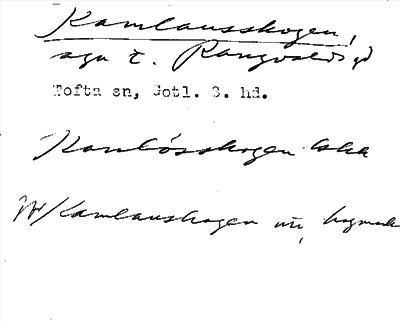 Kamlausskogen,
sgn t. Rangvalds gd
Tofta sn, Gotl. S. hd.
Kambósskogen
Kamlauskogen